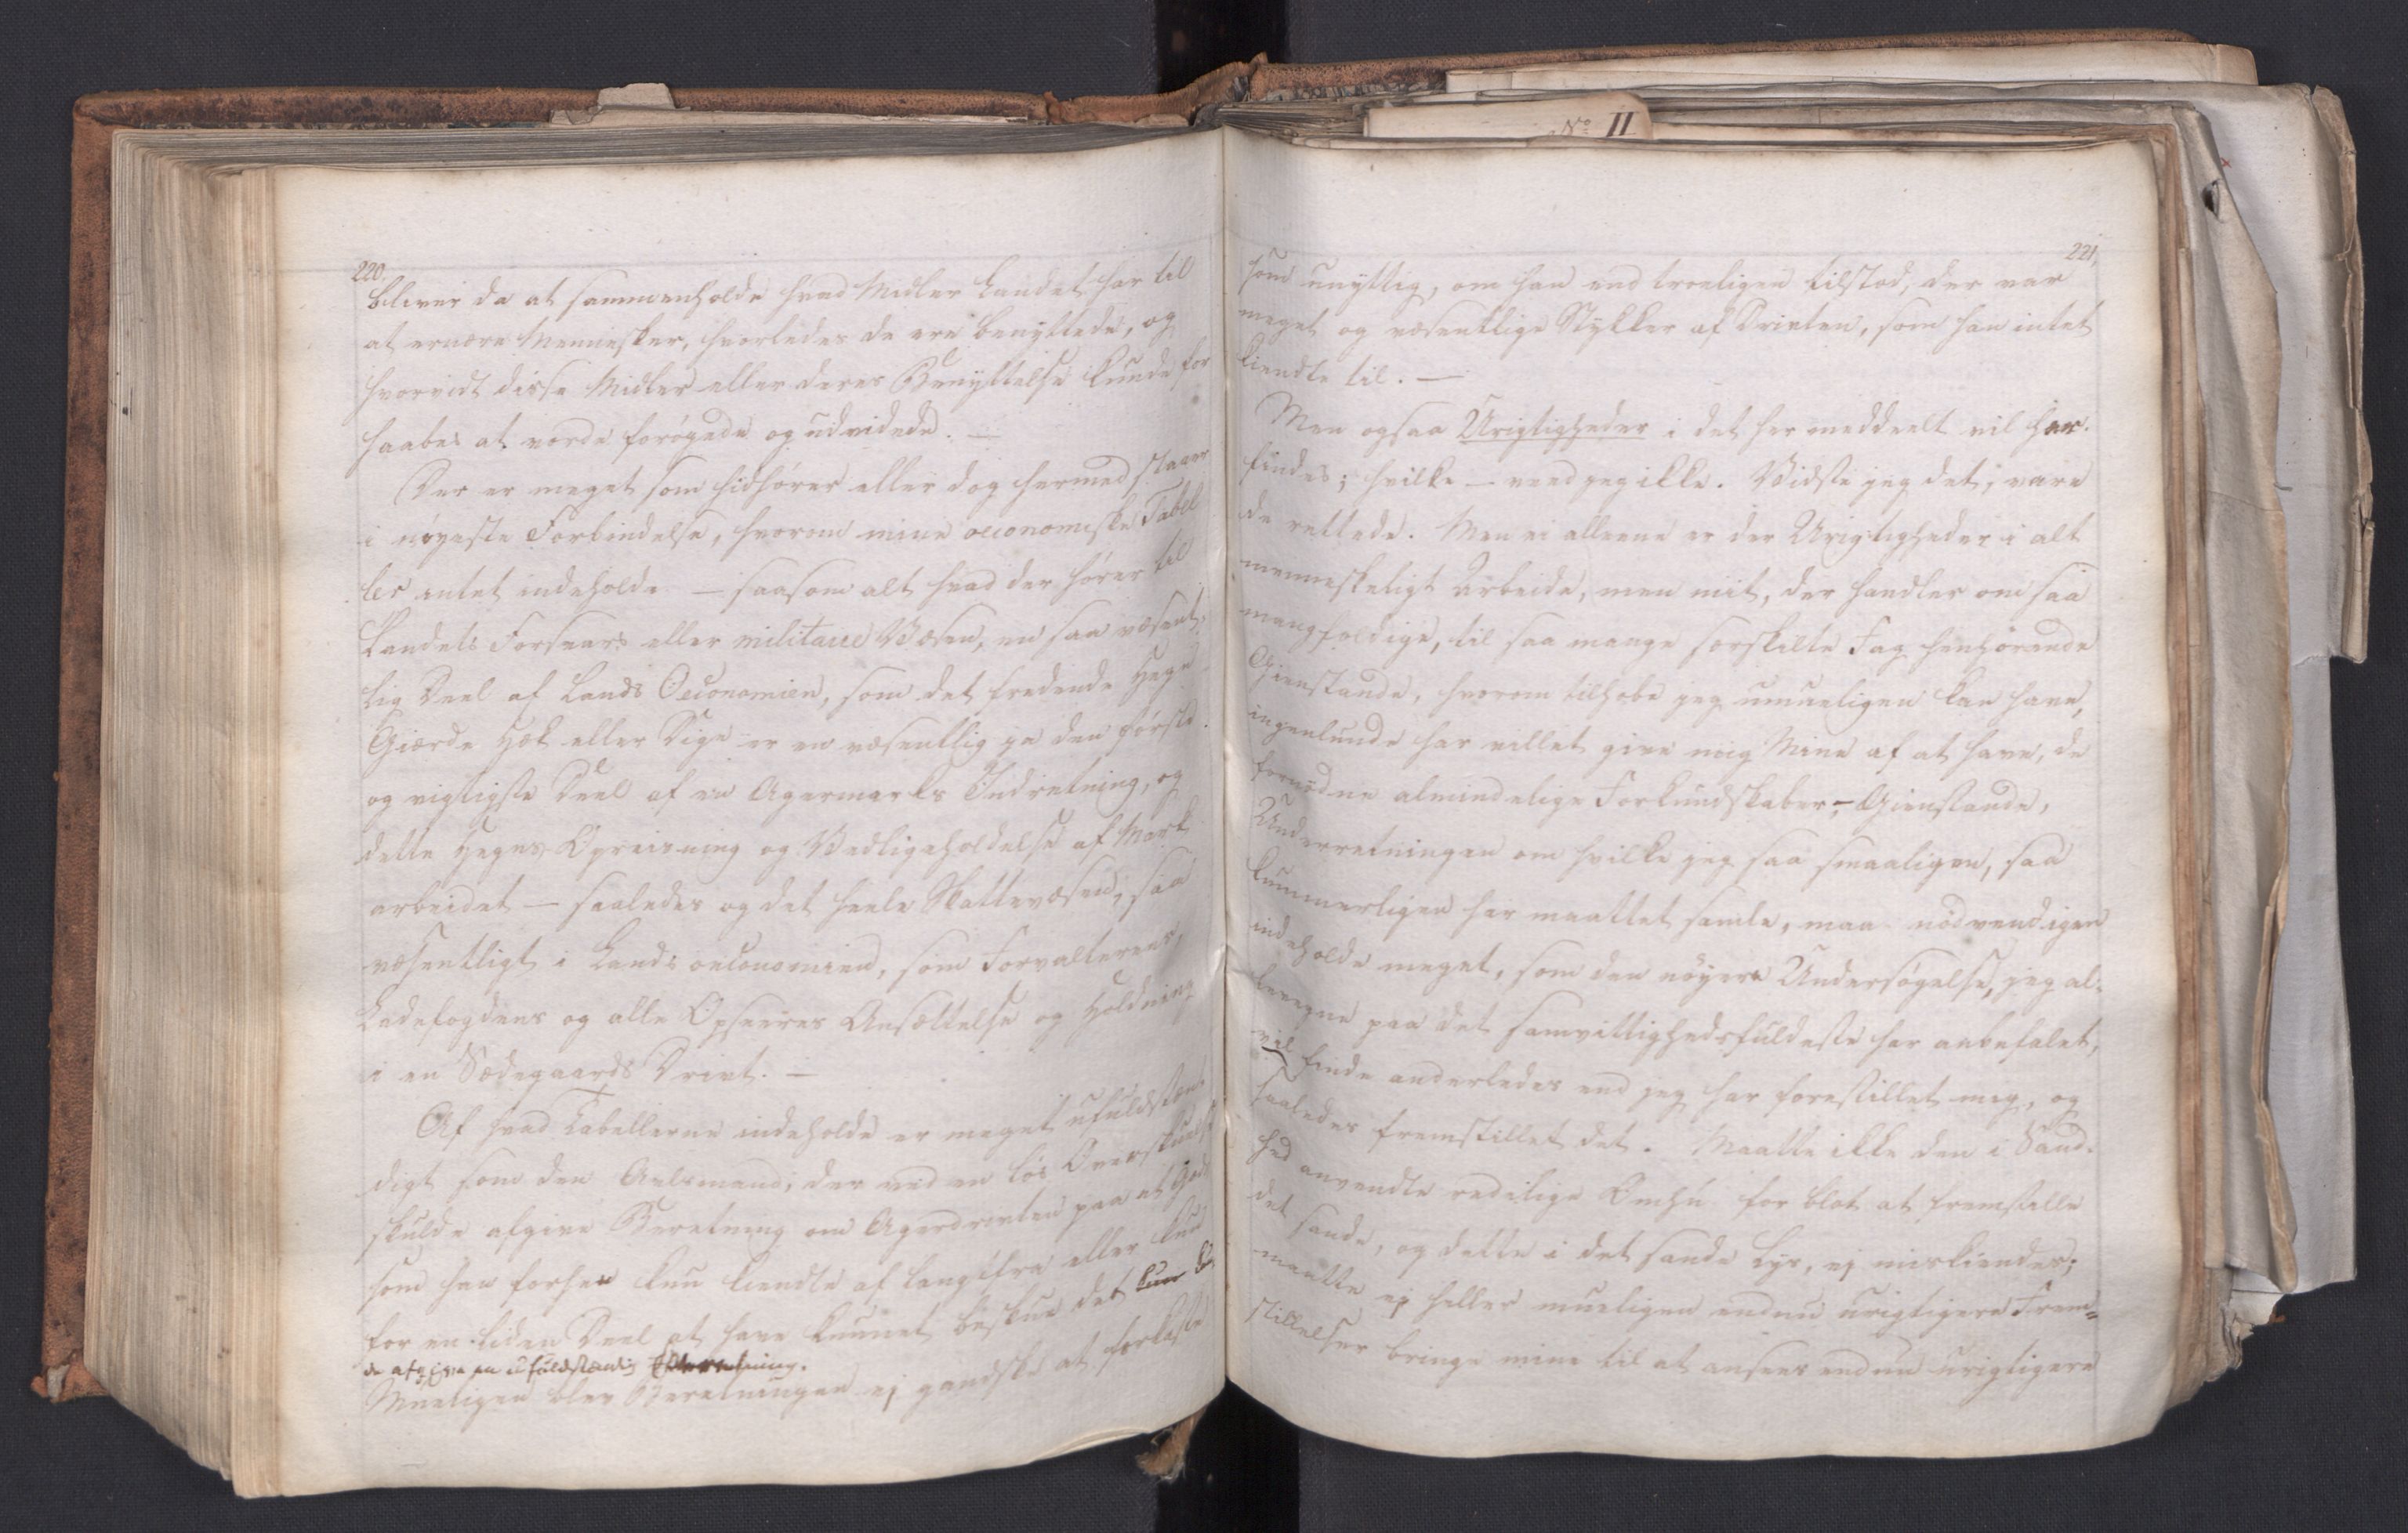 No II
220.
bliver da at sammenholde hvad Midler Landet har til
at ernære Mennesker, hvorledes de ere benyttede, og
hvorvidt disse Midler eller deres Benyttelse kunde for
haabes at vorde forøgede og udvidede. —
Der er meget som hidhører eller dog hermed staaer
i nøyeste Forbindelse, hvorom mine oeconomiske Tabel
ler intet indeholde — saasom alt hvad der hører til
Landets Forsvars eller militaire Væsen, en saa væsent
lig Deel af Lands Oeconomien, som det fredende Hegn
Gierde Hæk eller Dige er en væsentlig ja den første
og vigtigste Deel af en Agermarks Indretning, og
dette Hegns Opreisning og Vedligeholdelse af Mark
arbeidet — saaledes og det heele Skattevæsen, saa
væsentligt i Lands oeconomien, som Forvalterens,
Ladefogdens og alle Opseeres Ansættelse og Holdning
i en Sædegaards Drivt. —
Af hvad Tabellerne indeholde er meget ufuldstæn
digt som den Avlsmand, der ved en løs Overskuelse
skulde afgive Beretning om Agerdrivten paa et Gods
som han forhen kun kiendte af langtfra eller kun
for en liden Deel at have kunnet beskue det kun
de afgive en ufuldstændig
Mueligen blev Beretningen ej gandske at forkaste
221,
som unyttig, om han end troeligen tilstod, der var
meget og væsentlige Stykker af Drivten, som han intet
kiendte til. —
Men ogsaa Urigtigheder i det her meddeelt vil her
findes; hvilke — veed jeg ikke. Vidste jeg det, vare
de rettede. Men ei alleene er der Urigtigheder i alt
menneskeligt Arbeide, men mit, der handler om saa
mangfoldige, til saa mange særskilte Fag henhørende
Gienstande, hvorom tilhobe jeg umueligen kan have,
ingenlunde har villet give mig Mine af at have, de
fornødne almindelige Forkundskaber, — Gienstande,
Underretningen om hvilke jeg saa smaaligen, saa
kummerligen har maattet samle, maa nødvendigen
indeholde meget, som den nøyere Undersøgelse, jeg al-
levegne paa det samvittighedsfuldeste har anbefalet,
vil finde anderledes end jeg har forestillet mig, og
saaledes fremstillet det. Maatte ikke den i Sand-
hed anvendte redelige Omhu for blot at fremstille
det sande, og dette i det sande Lys, ej miskiendes;
maatte ej heller mueligen endnu urigtigere Frem=
stillelser bringe mine til at ansees endnu urigtigere